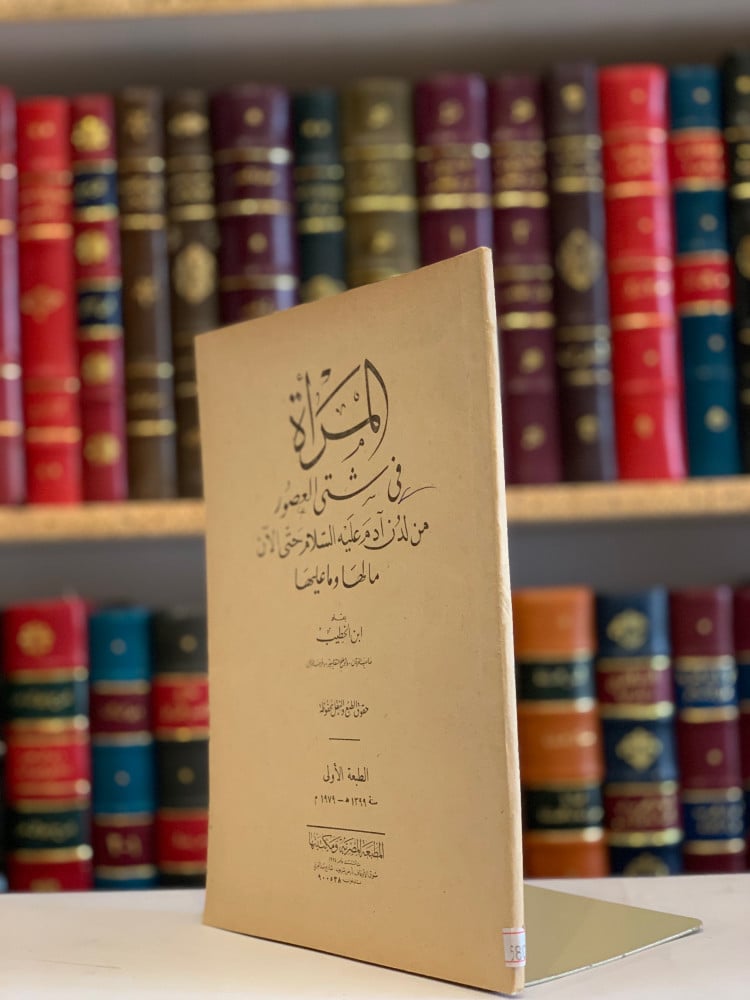 المرأة
في شتى العصور
من لدن آدم عليه السلام حتى الآن
مالها وما عليها
بقلم
ابن الخطيب
حقوق الطبع والنقل محفوظة
الطبعة الأولى
سنة ١٣٩٩ هـ - ١٩٧٩ م
المطبعة المصرية ومكتبتها
٩٠٠٥٣٨
580